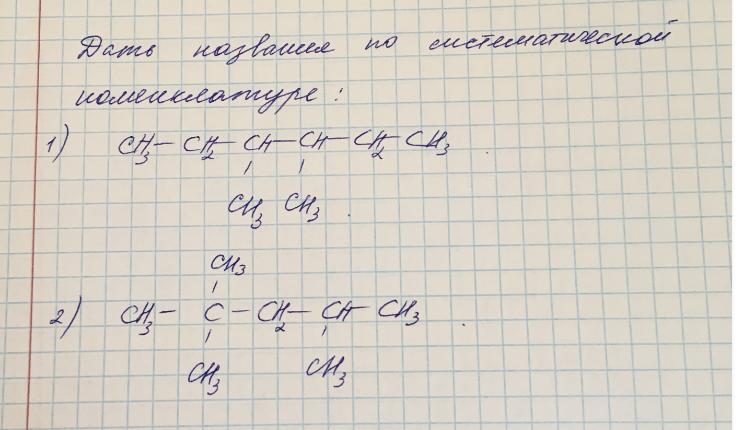 Дать названия по систематической
номенклатуре:
1) CH₃ — CH₂ — CH — CH — CH₂ — CH₃
CH₃ CH₃
CH₃
2) CH₃ — C — CH₂ — CH — CH₃
CH₃ CH₃